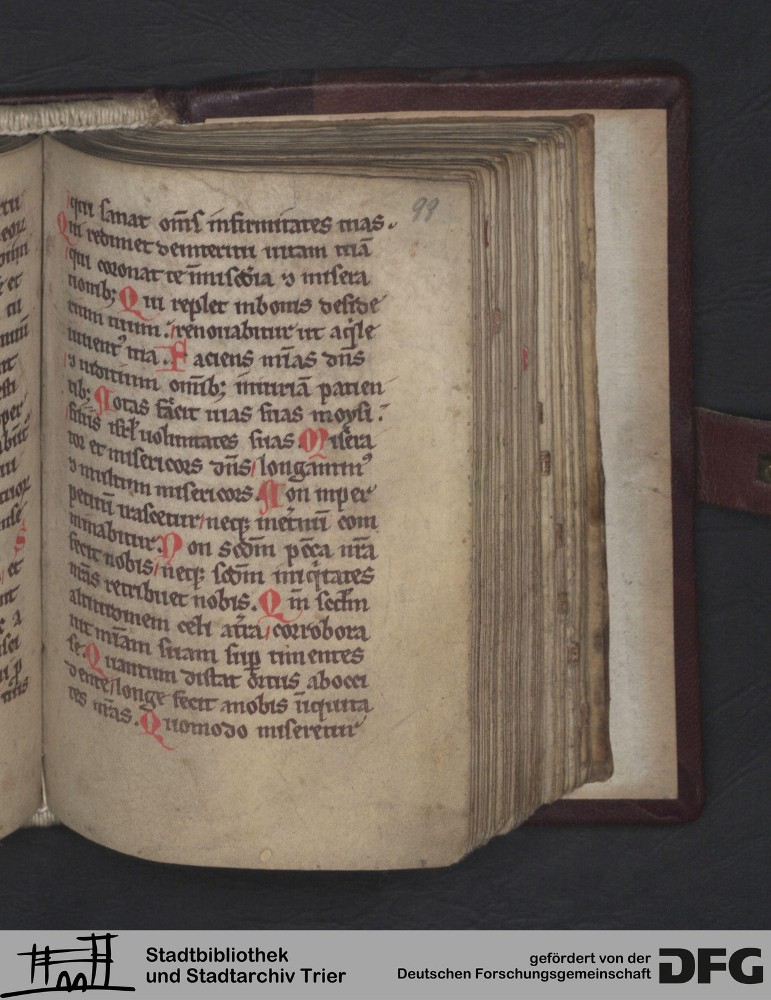 99
qui sanat om̄s infirmitates tuas.
Qui redimet deinteritu uitam tuā
qui coronat te ī mis̄cdia ⁊ misera
tionib; Qui replet inbonis deside
rium tuum: renouabitur ut aq̄le
iuuent᷒ tua. Faciens m̄ias dn̄s
⁊ iuditium om̄ib; iniuriā patien
tib; Notas fēcit uias suas moysi:
filiis isrl̄ uoluntates suas Mis̄era
tor et misericors dn̄s longanim᷒
⁊ multum misericors. Non inper
petuū irascetur neq; inet̄nū com
minabitur. Non scd̄m pc̄ca nr̄a
fecit nobis neq; scd̄m iniq̄tates
nr̄as retribuet nobis. Qm̄ scd̄m
altitudinem celi at̄ra corrobora
uit m̄iam suam sup̄ timentes
se. Quantum distat ōrtus abocci
dente longe fecit anobis īiquita
tes nr̄as. Quomodo miseretur
Stadtbibliothek
und Stadtarchiv Trier
gefördert von der
Deutschen Forschungsgemeinschaft
DFG